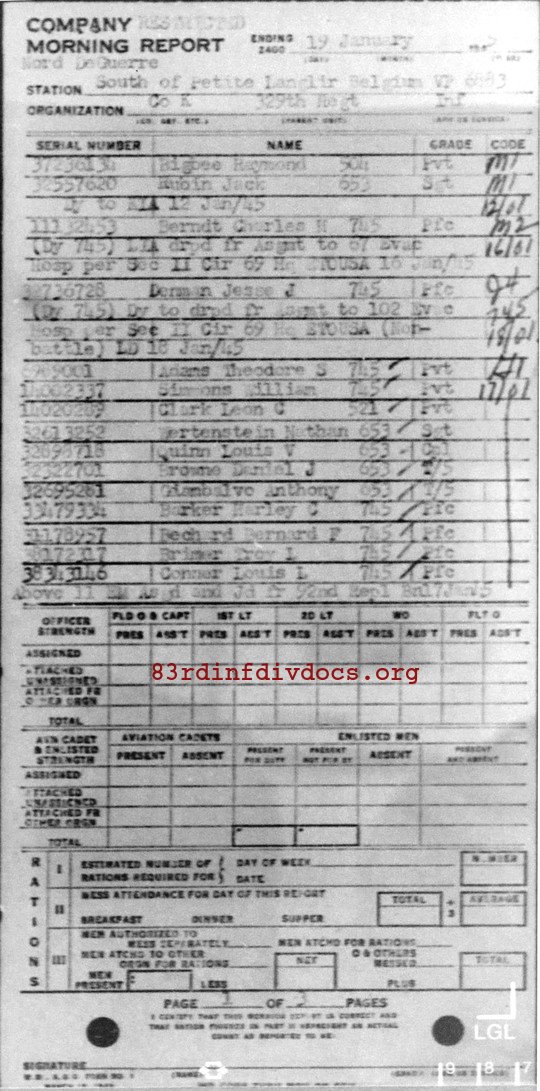 COMPANY RESTRICTED
MORNING REPORT ENDING 2400 19 January
Nord DeQuerre
STATION South of Petite Langlir Belgium VP 6883
ORGANIZATION Co K 329th Regt Inf
SERIAL NUMBER NAME GRADE CODE
37236134 Bigbee Raymond 504 Pvt M1
32557620 Rubin Jack 653 Sgt M1
Dy to KIA 12 Jan/45 12/01
11132453 Berndt Charles H 745 Pfc M2
(Dy 745) LIA drpd fr Asgmt to 67 Evac 16/01
Hosp per Sec II Cir 69 Hq ETOUSA 16 Jan/45
32736728 Denman Jesse J 745 Pfc
(Dy 745) Dy to drpd fr Asgmt to 102 Evac 745
Hosp per Sec II Cir 69 Hq ETOUSA (Non- 18/01
battle) LD 18 Jan/45
6989001 Adams Theodore S 745 Pvt
14002337 Simmons William 745 Pvt 17/01
14020289 Clark Leon C 521 Pvt
32613252 Wertenstein Nathan 653 Sgt
32898718 Quinn Louis V 653 Cpl
32322701 Browne Daniel J 653 T/5
32695281 Giambalvo Anthony 653 T/5
33479334 Barker Harley C 745 Pfc
31178957 Bechard Bernard F 745 Pfc
38172317 Brimer Troy L 745 Pfc
38343146 Conner Louis L 745 Pfc
Above 11 EM Asgd and Jd fr 92nd Repl Bn 17 Jan/45
OFFICER STRENGTH FLD O & CAPT 1ST LT 2D LT WO FLT O
PRES ABS'T PRES ABS'T PRES ABS'T PRES ABS'T PRES ABS'T
ASSIGNED
ATTACHED UNASSIGNED
ATTACHED FR OTHER ORGN
TOTAL
83rdinfdivdocs.org
AVN CADET & ENLISTED STRENGTH AVIATION CADETS ENLISTED MEN
PRESENT ABSENT PRESENT FOR DUTY PRESENT NOT FOR DY ABSENT PRESENT AND ABSENT
ASSIGNED
ATTACHED UNASSIGNED
ATTACHED FR OTHER ORGN
TOTAL
RATIONS
I ESTIMATED NUMBER OF RATIONS REQUIRED FOR DAY OF WEEK DATE NUMBER
II MESS ATTENDANCE FOR DAY OF THIS REPORT TOTAL ÷ 3 AVERAGE
BREAKFAST DINNER SUPPER
III MEN AUTHORIZED TO MESS SEPARATELY MEN ATCHD FOR RATIONS
MEN ATCHD TO OTHER ORGN FOR RATIONS NET O & OTHERS MESSED TOTAL
MEN PRESENT LESS PLUS
PAGE OF 3 PAGES
I CERTIFY THAT THIS MORNING REPORT IS CORRECT AND
THAT RATION FIGURES IN PART II REPRESENT AN ACTUAL
COUNT AS REPORTED TO ME:
LGL
SIGNATURE
9 8 7